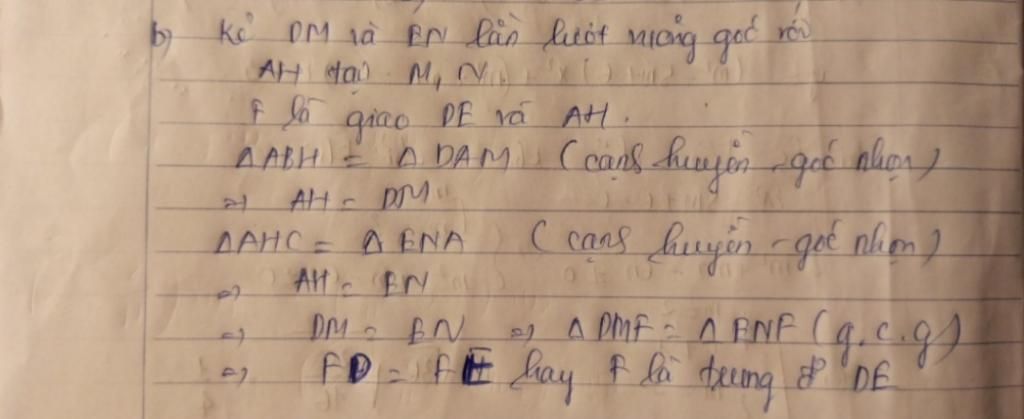 b) Kẻ DM và EN lần lượt vuông góc với
AH tại M, N.
F là giao DE và AH.
ΔABH = ΔDAM (cạnh huyền - góc nhọn)
=> AH = DM
ΔAHC = ΔENA (cạnh huyền - góc nhọn)
=> AH = EN
=> DM = EN => ΔDMF = ΔENF (g.c.g)
=> FD = FE hay F là trung đ DE